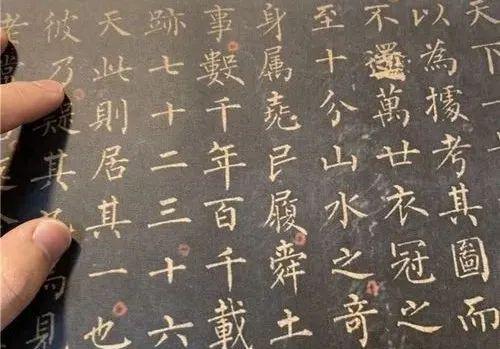 天下
以為據考其圖而
不還萬世衣冠之
至十分山水之奇
身属堯民履舜土
事數千年百千載
跡七十二三十六
天此則居其一也
彼乃疑其而見
老